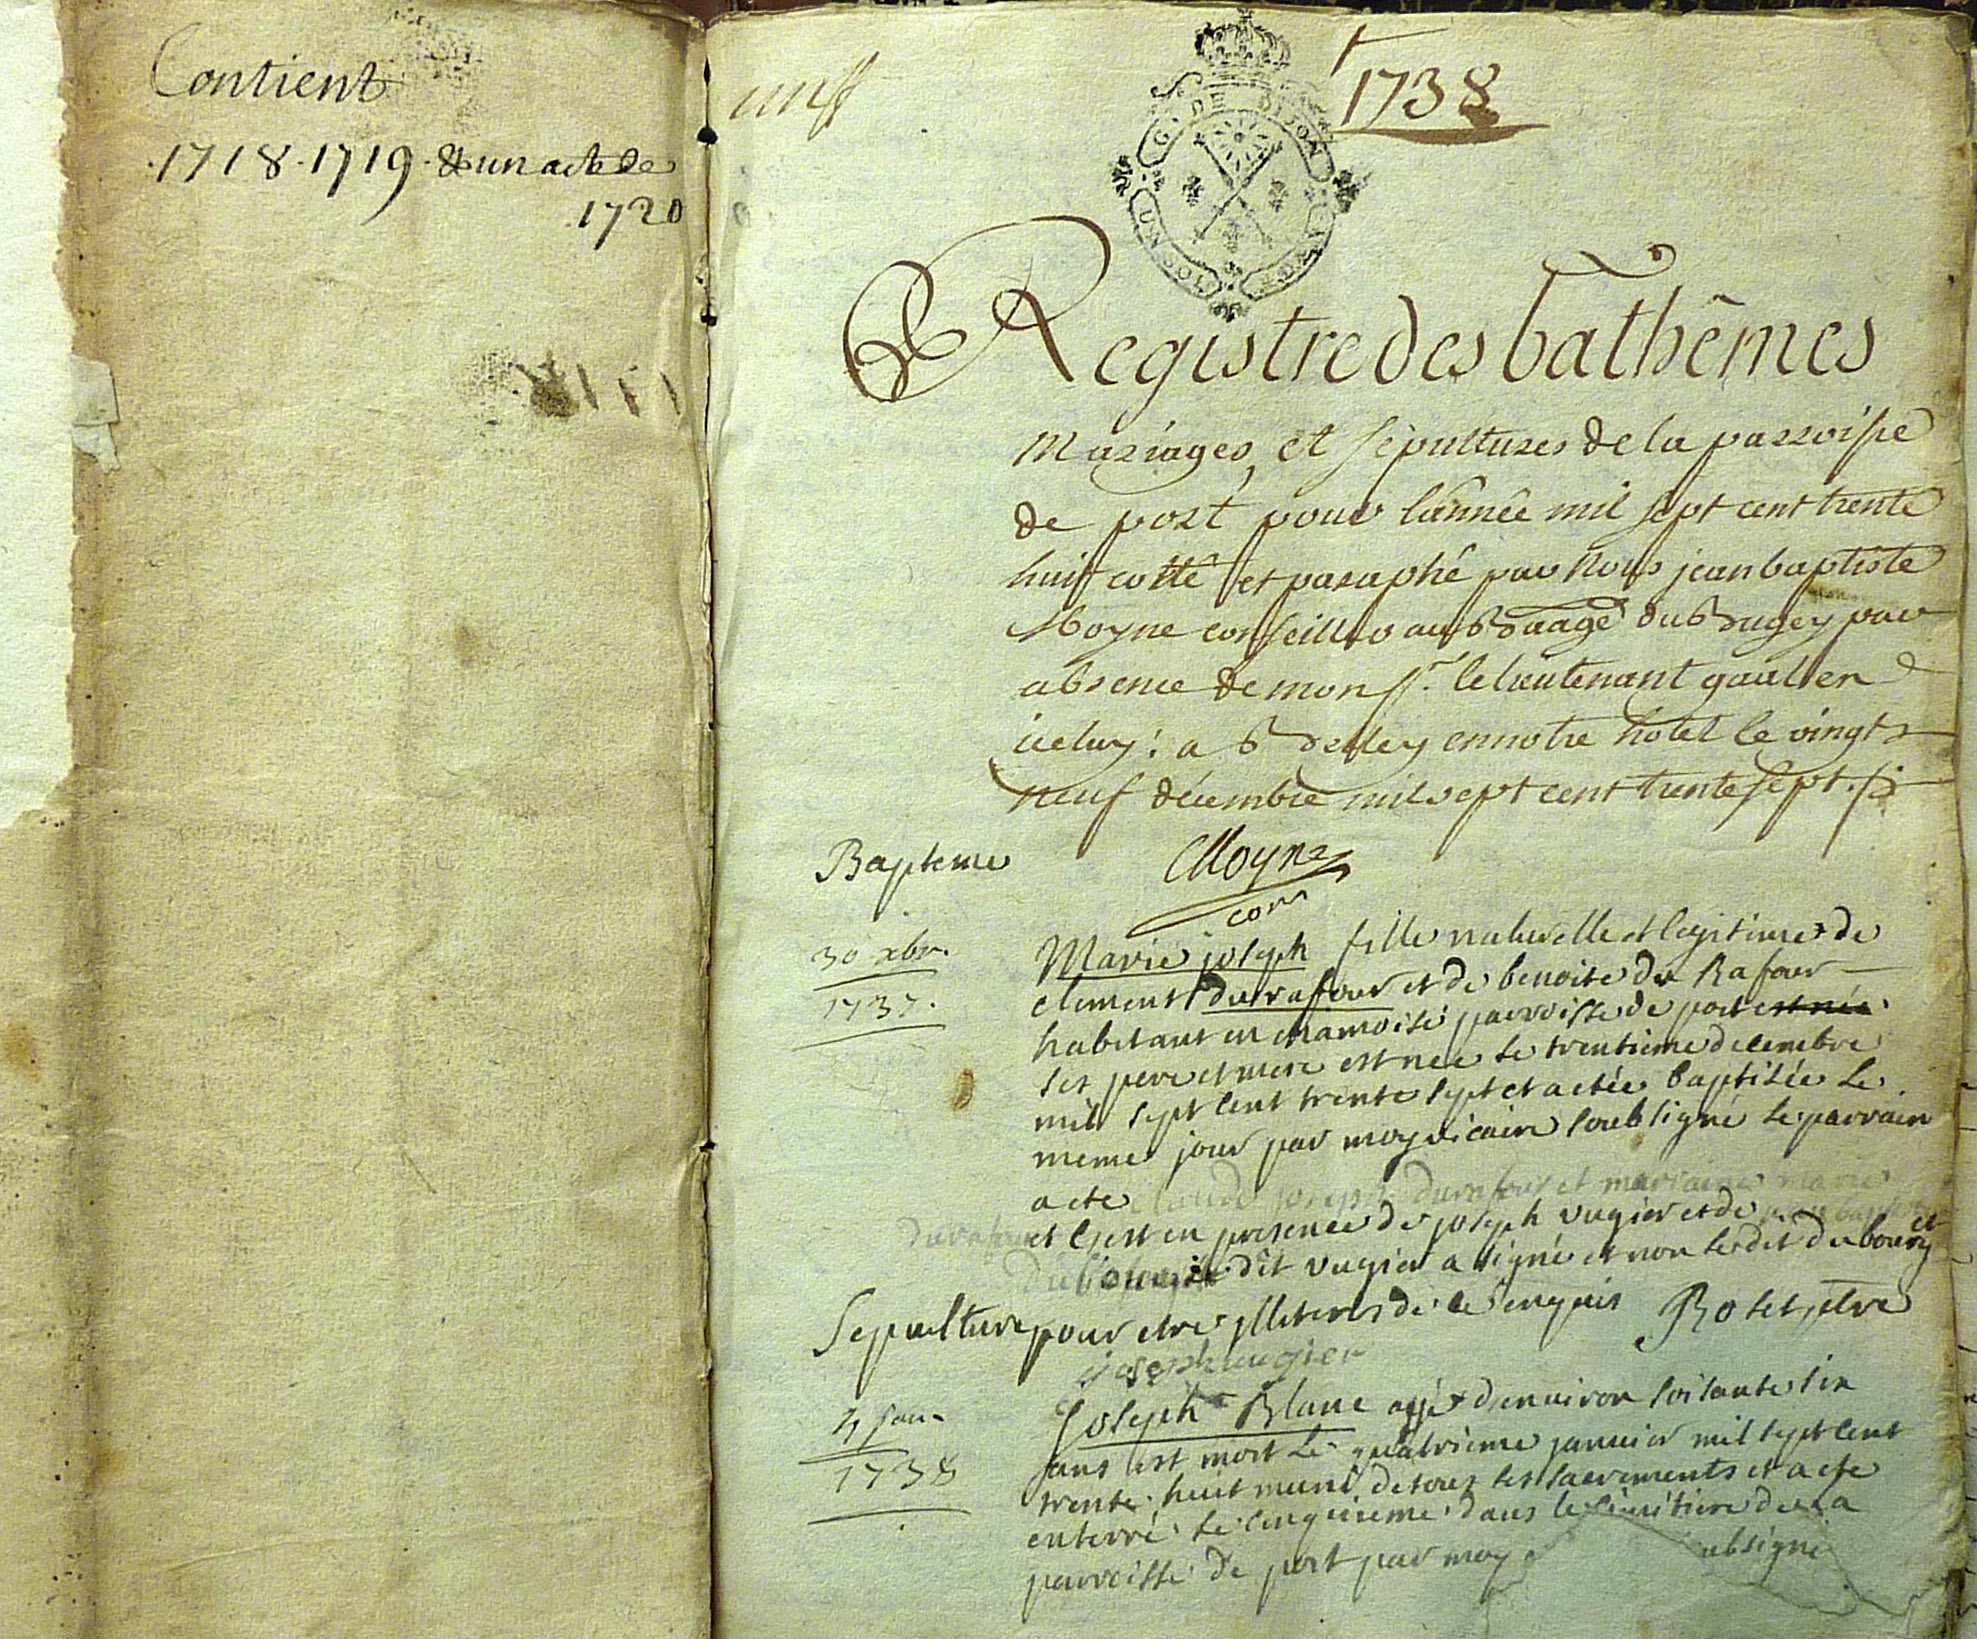 Contient
1718 · 1719 · & un acte de
1720
1738
G. DE DIJON
UN SOL
Registre des bathêmes
Mariages, et sépultures de la parroisse
de port pour l'année mil sept cent trente
huit cotté et paraphé par Nous jean baptiste
Moyne conseiller au Bailliage du Bugey par
absence de monsr. le lieutenant gaul en
iceluy : a Belley en notre hotel le vingt
neuf décembre mil sept cent trente sept
Bapteme
Moyne
con
30 xbr.
1737.
Marie joseph fille naturelle et legitime de
clement durafour et de benoite du Rafour
habitant en parroisse de port est née
ses pere et mere est née le trentieme decembre
mil sept cent trente sept et a etée baptisée le
meme jour par moy vicaire soubsigné le parrain
a ete claude joseph durafour et marraine marie
durafour et c'est en presence de joseph vugier et de jean baptiste
dubourg le dit vugier a signé et non le dit dubourg
Sepulture
pour etre illiteres de ce enquis Roset ptre
joseph vugier
4 janr
1738
Joseph Blanc agé d'environ soisante six
ans est mort le quatrieme janvier mil sept cent
trente huit muni de tous les sacrements et a ete
enterré le cinquieme dans le cimitiere de la
parroisse de port par moy ubsigné